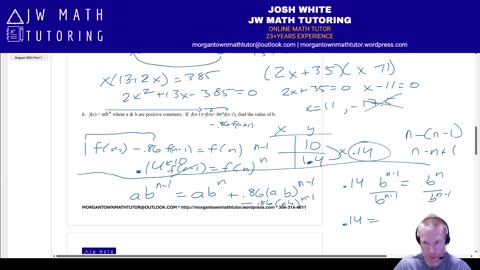 JW MATH
TUTORING
JOSH WHITE
JW MATH TUTORING
ONLINE MATH TUTOR
23+YEARS EXPERIENCE
morgantownmathtutor@outlook.com | morgantownmathtutor.wordpress.com
August 2024 Part 1
x(13+2x)=385
2x²+13x-385=0
(2x+35)(x-11)
2x+35=0 x-11=0
x=11, -17.5
where a & b are positive constants. If
find the value of b.
-.86f(n-1)
x y
n-1 10
n 1.4
x .14
n-(n-1)
n-n+1
1f(n-1)-.86f(n-1)=f(n)
.14f(n-1)=f(n)
ab^(n-1)=ab^n+.86(ab)^(n-1)
-.86(ab)^(n-1)
.14 b^(n-1)/b^(n-1) = b^n/b^(n-1)
.14=
MORGANTOWNMATHTUTOR@OUTLOOK.COM * morgantownmathtutor.wordpress.com * 304-314-4811